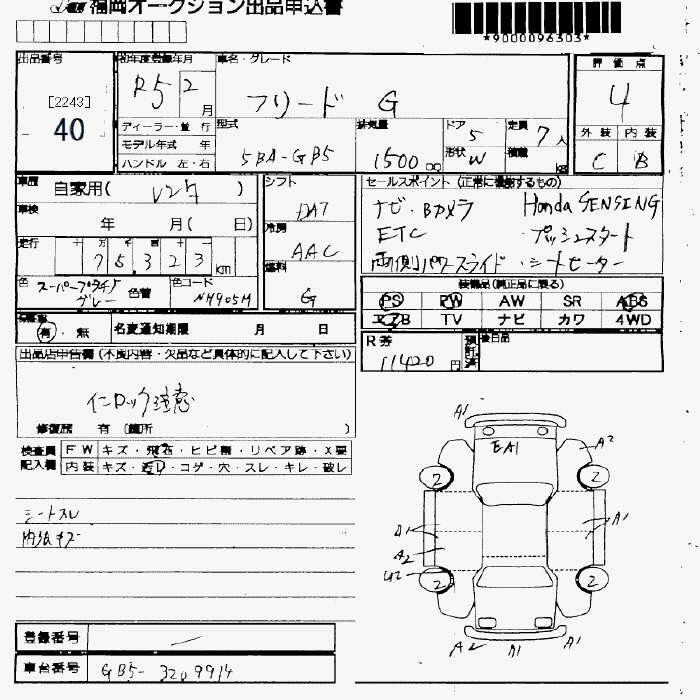 JU福岡オークション出品申込書
*9000096303*
出品番号
[2243]
40
初年度登録年月
R5 2 月
車名・グレード
フリード G
評価点
4
外装 内装
C B
ディーラー・並行
モデル年式 年
ハンドル 左・右
型式
5BA-GB5
排気量
1500 cc
ドア 5
形状 W
定員 7人
積載 kg
車歴 自家用( レンタ )
車検 年 月( 日)
走行 十 万 千 百 十 一
75,323 km
色 スーパープラチナグレー 色替
色コード NH905M
シフト
DAT
冷房
AAC
燃料
G
セールスポイント (正常に機能するもの)
ナビ・Bカメラ Honda SENSING
ETC ・プッシュスタート
両側パワースライド・シートヒーター
装備品(純正品に限る)
PS PW AW SR ABS
エアB TV ナビ カワ 4WD
R券
11420 円
預託済
後日品
保証書
有・無 名変通知期限 月 日
出品店申告欄 (不良内容・欠品など具体的に記入して下さい)
仁ロック注意
修復歴 有 (箇所 )
検査員記入欄
FW キズ・飛石・ヒビ割・リペア跡・X要
内装 キズ・汚れ・コゲ・穴・スレ・キレ・破レ
シートスレ
内張キズ
A1
EA1
A2
2 2
A1 A1
A2
U2
2 2
A2 A1 A1
登録番号 —
車台番号 GB5-3209914